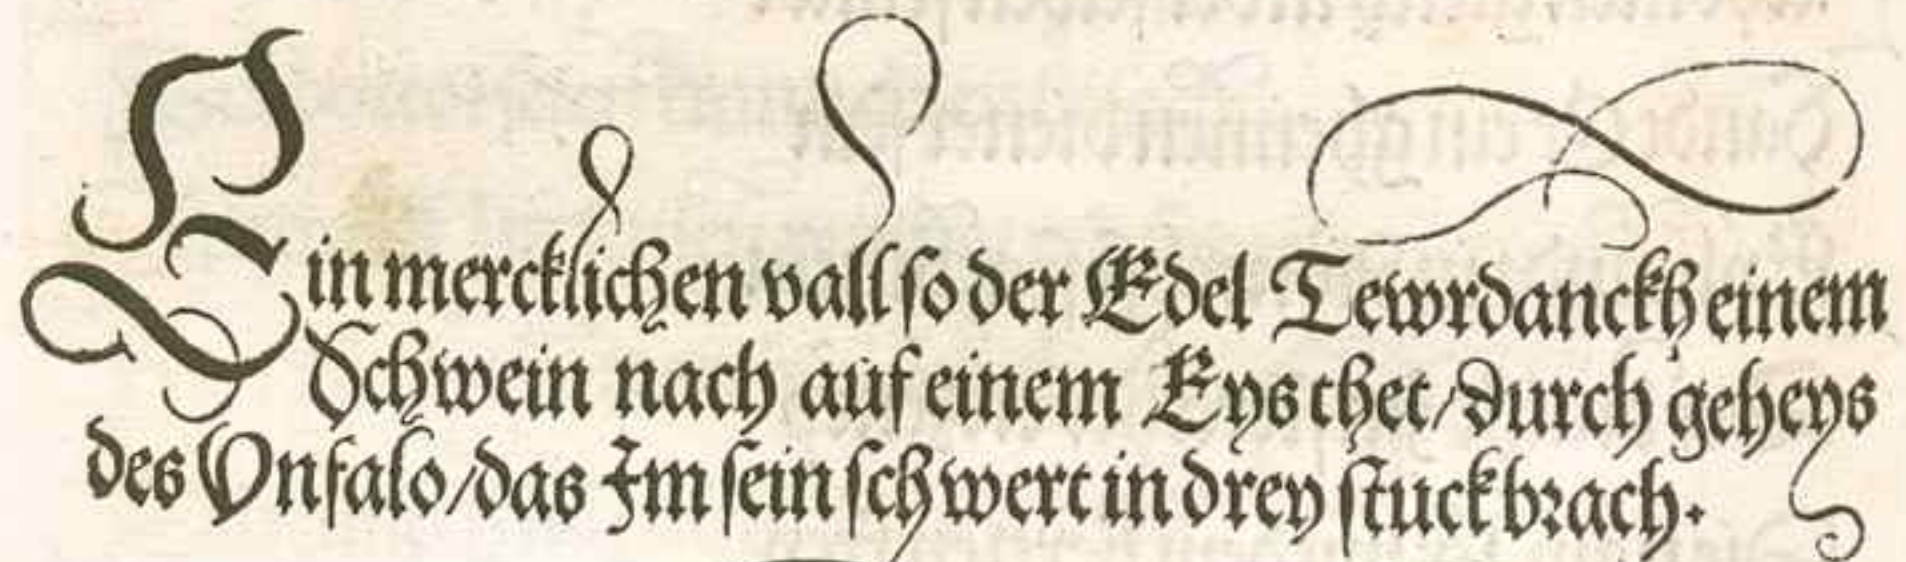 Ein mercklichen vall ſo der Edel Tewrdanckh einem
Schwein nach auf einem Eys thet/durch geheys
des Vnfalo/das Im ſein ſchwert in drey ſtuck brach.